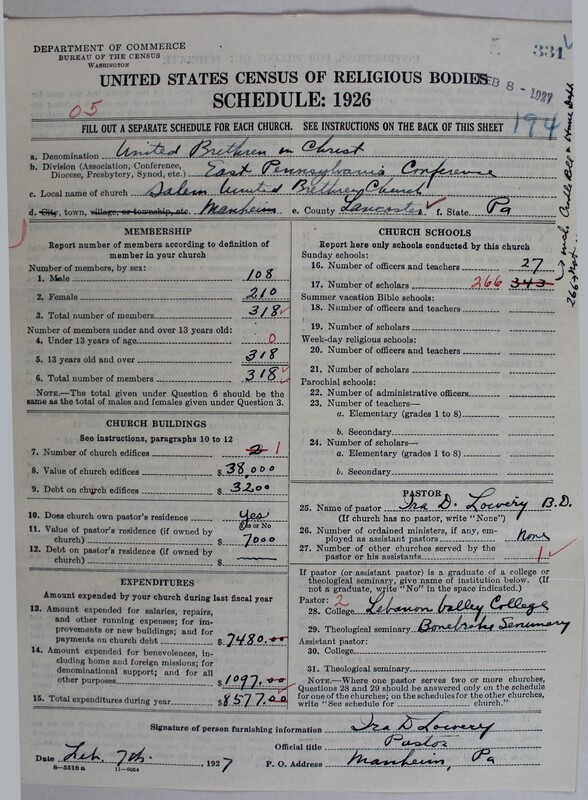 DEPARTMENT OF COMMERCE
BUREAU OF THE CENSUS
WASHINGTON
331
UNITED STATES CENSUS OF RELIGIOUS BODIES
FEB 8 - 1927
SCHEDULE: 1926
05
194
FILL OUT A SEPARATE SCHEDULE FOR EACH CHURCH. SEE INSTRUCTIONS ON THE BACK OF THIS SHEET
a. Denomination United Brethren in Christ
b. Division (Association, Conference, Diocese, Presbytery, Synod, etc.) East Pennsylvania Conference
c. Local name of church Salem United Brethren Church
d. City, town, village, or township, etc. Manheim e. County Lancaster f. State Pa
MEMBERSHIP
Report number of members according to definition of
member in your church
Number of members, by sex:
1. Male 108
2. Female 210
3. Total number of members 318
Number of members under and over 13 years old:
4. Under 13 years of age 0
5. 13 years old and over 318
6. Total number of members 318
NOTE.—The total given under Question 6 should be the
same as the total of males and females given under Question 3.
CHURCH BUILDINGS
See instructions, paragraphs 10 to 12
7. Number of church edifices 2 1
8. Value of church edifices $ 38,000
9. Debt on church edifices $ 3200
10. Does church own pastor's residence Yes
Yes or No
11. Value of pastor's residence (if owned by
church) $ 7000
12. Debt on pastor's residence (if owned by
church) $
EXPENDITURES
Amount expended by your church during last fiscal year
13. Amount expended for salaries, repairs,
and other running expenses; for im-
provements or new buildings; and for
payments on church debt $ 7480.00
14. Amount expended for benevolences, in-
cluding home and foreign missions; for
denominational support; and for all
other purposes $ 1097.00
15. Total expenditures during year $ 8577.00
CHURCH SCHOOLS
Report here only schools conducted by this church
Sunday schools:
16. Number of officers and teachers 27
17. Number of scholars 266 343
Summer vacation Bible schools:
18. Number of officers and teachers
19. Number of scholars
Week-day religious schools:
20. Number of officers and teachers
21. Number of scholars
Parochial schools:
22. Number of administrative officers
23. Number of teachers—
a. Elementary (grades 1 to 8)
b. Secondary
24. Number of scholars—
a. Elementary (grades 1 to 8)
b. Secondary
PASTOR
25. Name of pastor Ira D. Lowery B.D.
(If church has no pastor, write "None")
26. Number of ordained ministers, if any, em-
ployed as assistant pastors None
27. Number of other churches served by the
pastor or his assistants 1
If pastor (or assistant pastor) is a graduate of a college or
theological seminary, give name of institution below. (If
not a graduate, write "No" in the space indicated.)
Pastor: 2
28. College Lebanon Valley College
29. Theological seminary Bonebrake Seminary
Assistant pastor:
30. College
31. Theological seminary
NOTE.—Where one pastor serves two or more churches,
Questions 28 and 29 should be answered only on the schedule
for one of the churches; on the schedules for the other churches,
write "See schedule for church."
Signature of person furnishing information Ira D Lowery
Official title Pastor
Date Feb. 7th, 1927 P. O. Address Manheim, Pa
8—5518 a 11—9054